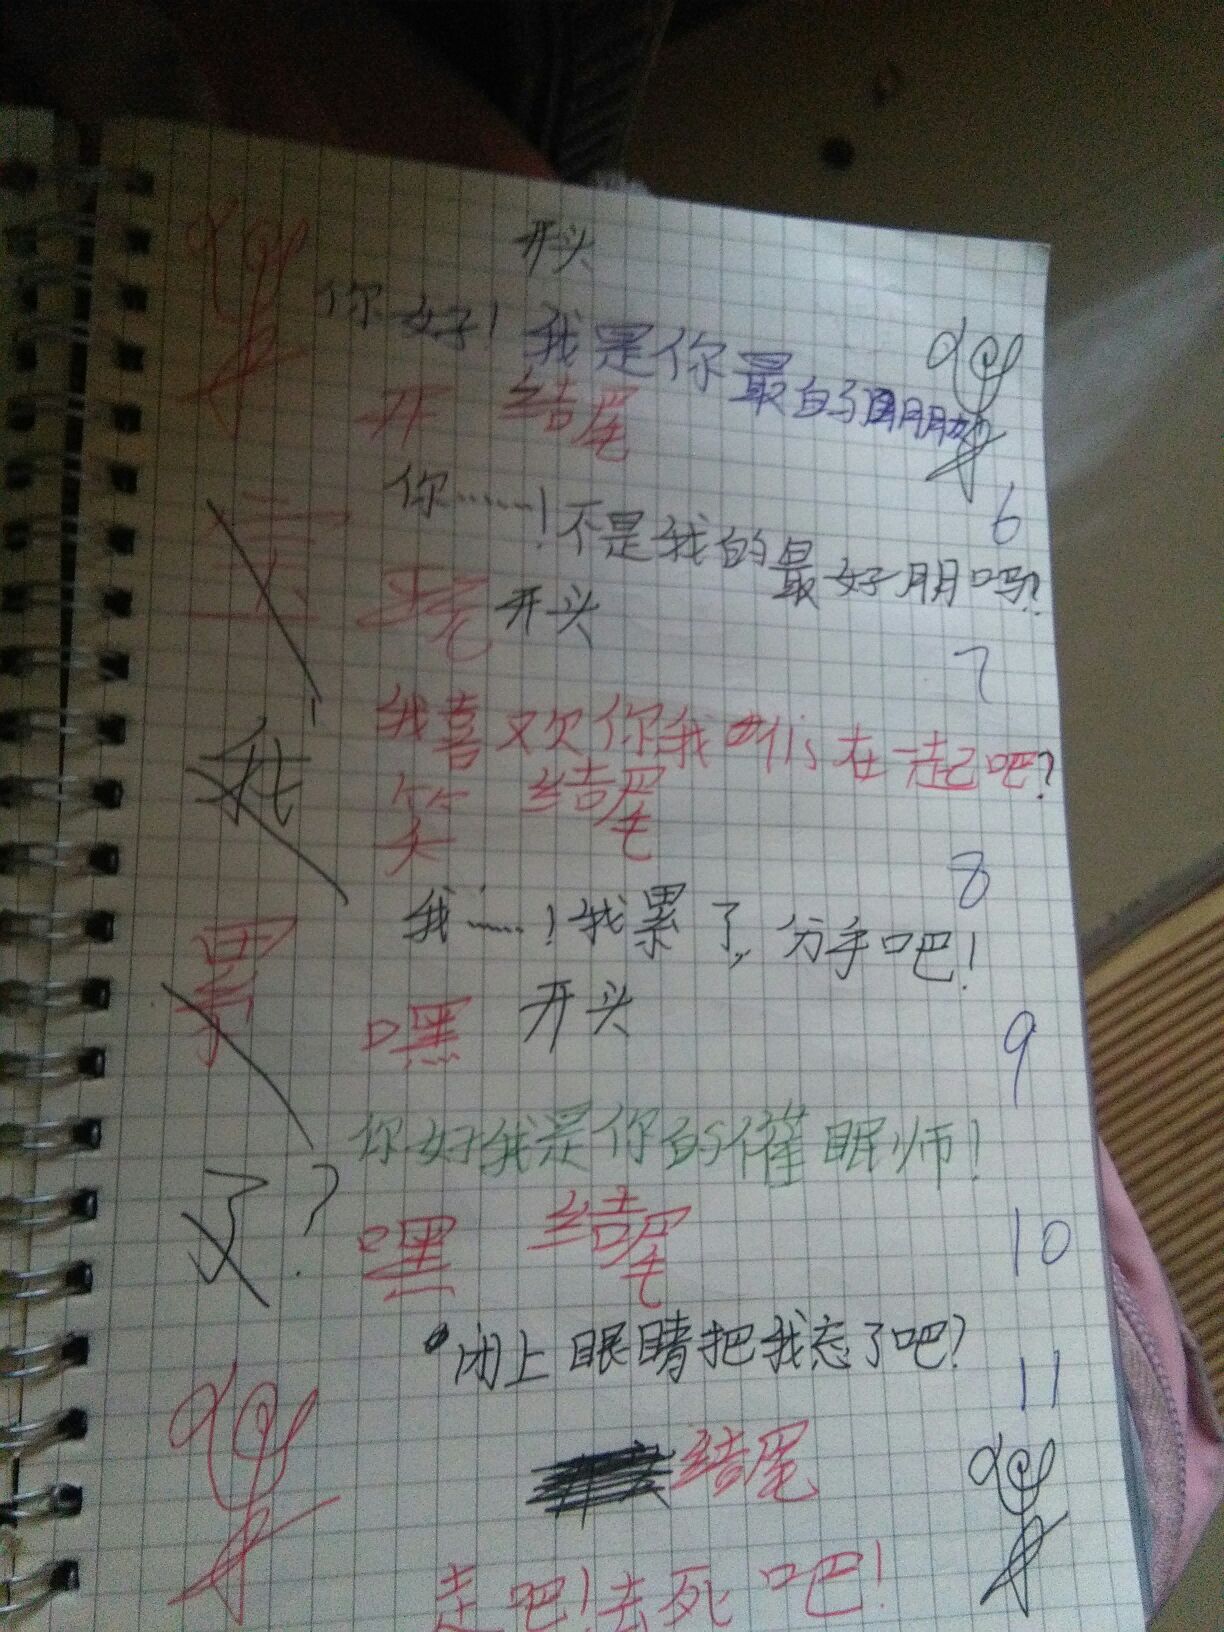 开头
你好!我是你最的朋朋友
开 结尾
你……!不是我的最好朋吗?
6
开头
7
我喜欢你我们在一起吧?
笑 结尾
我
8
我……!我累了,分手吧!
累
嘿 开头
9
你好我是你的催眠师!
了?
嘿 结尾
10
闭上眼睛把我忘了吧?
11
结尾
走吧!去死吧!